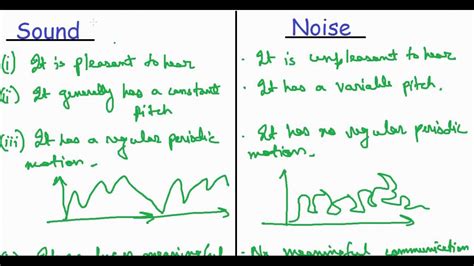 Sound
(i) It is pleasant to hear
(ii) It generally has a constant
pitch
(iii) It has a regular periodic
motion.
Noise
. It is unpleasant to hear
. It has a variable pitch.
. It has no regular periodic
motion.
. No meaningful communication